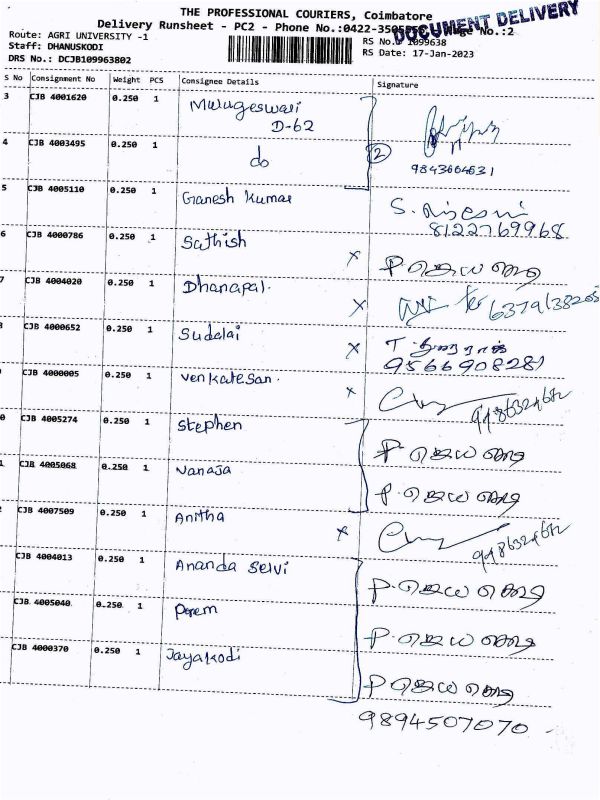 THE PROFESSIONAL COURIERS, Coimbatore
Delivery Runsheet - PC2 - Phone No.:0422-350 No.:2
DOCUMENT DELIVERY
Route: AGRI UNIVERSITY -1
RS No.: 1099638
Staff: DHANUSKODI
RS Date: 17-Jan-2023
DRS No.: DCJB109963802
S No Consignment No Weight PCS Consignee Details Signature
3 CJB 4001620 0.250 1 Murugeswari
D-62
4 CJB 4003495 0.250 1 do 2
9843664631
5 CJB 4005110 0.250 1 Ganesh Kumar S.
8122769968
6 CJB 4000786 0.250 1 Sathish x P ஜெய
7 CJB 4004020 0.250 1 Dhanapal. x
CJB 4000652 0.250 1 Sudalai x T.
9566908281
CJB 4000005 0.250 1 Venkatesan. x
0 CJB 4005274 0.250 1 Stephen P ஜெய
1 CJB 4005068 0.250 1 Vanaja P. ஜெய
CJB 4007509 0.250 1 Anitha x
CJB 4004013 0.250 1 Ananda Selvi P. ஜெய
CJB 4005040 0.250 1 Porem P. ஜெய
CJB 4000370 0.250 1 Jayakodi P ஜெய
9894507070